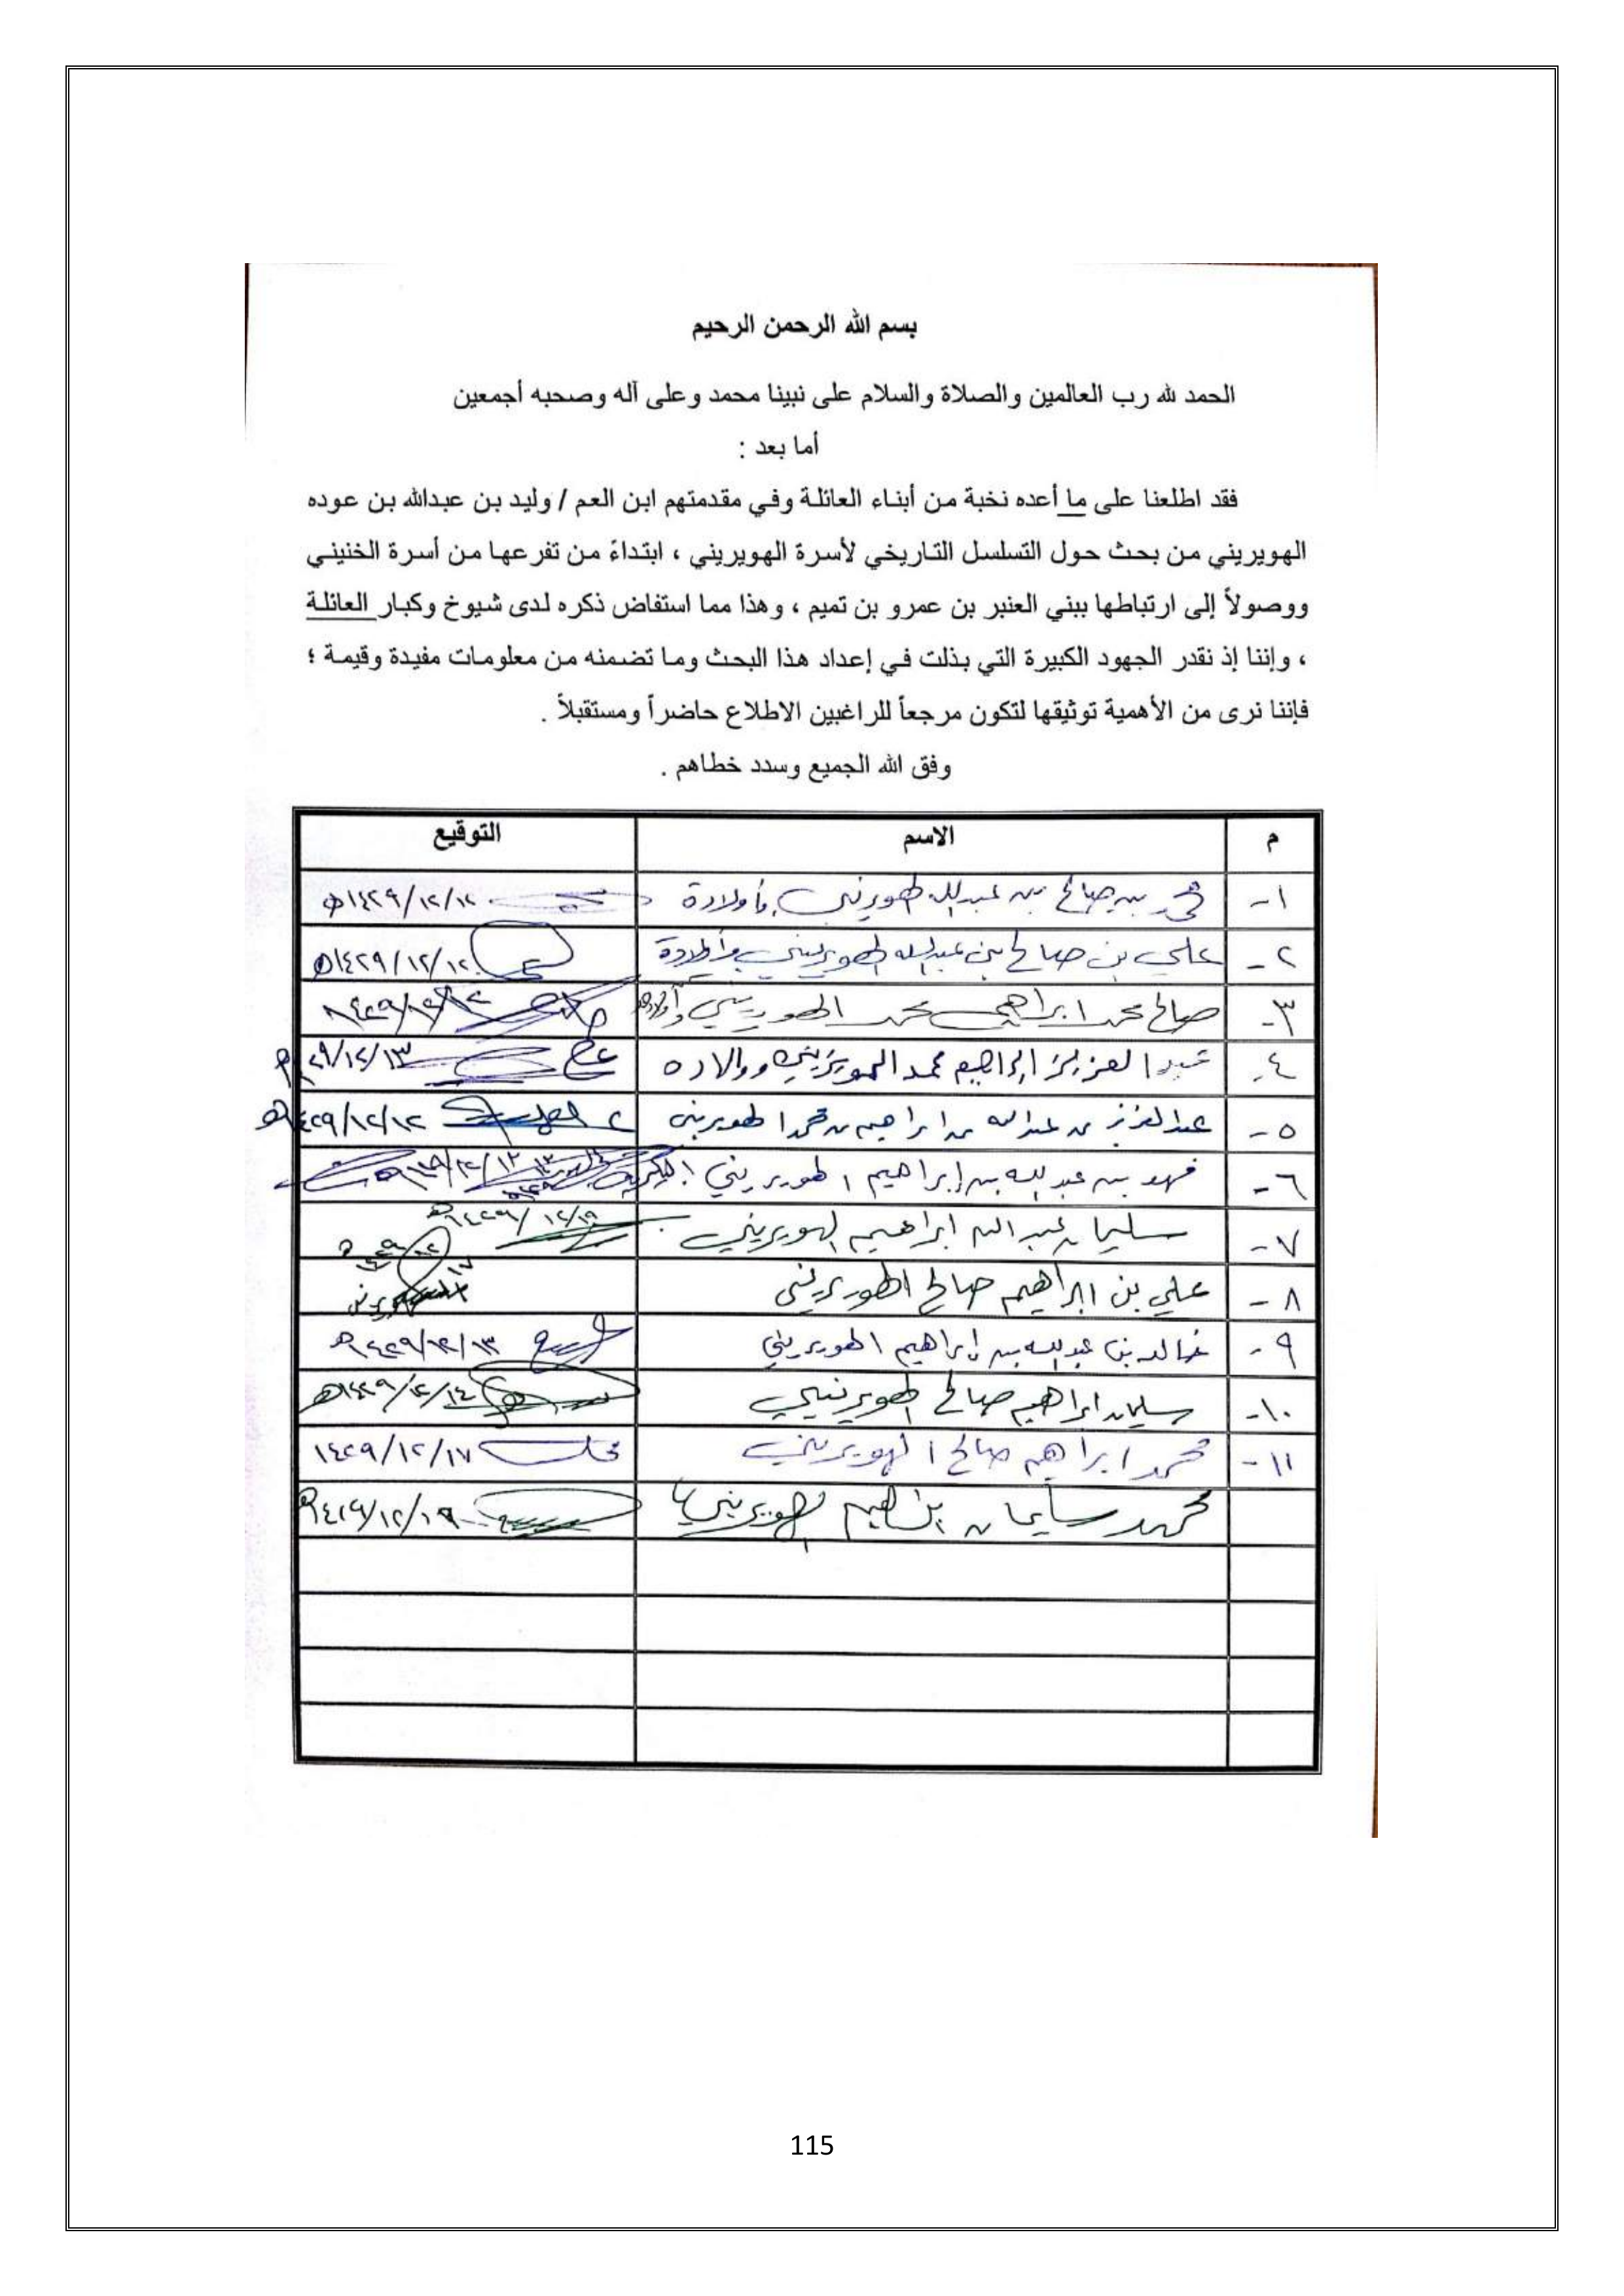 بسم الله الرحمن الرحيم
الحمد لله رب العالمين والصلاة والسلام على نبينا محمد وعلى آله وصحبه أجمعين
أما بعد :
فقد اطلعنا على ما أعده نخبة من أبناء العائلة وفي مقدمتهم ابن العم / وليد بن عبدالله بن عوده
الهويريني من بحث حول التسلسل التاريخي لأسرة الهويريني ، ابتداءً من تفرعها من أسرة الخنيني
ووصولاً إلى ارتباطها ببني العنبر بن عمرو بن تميم ، وهذا مما استفاض ذكره لدى شيوخ وكبار العائلة
، وإننا إذ نقدر الجهود الكبيرة التي بذلت في إعداد هذا البحث وما تضمنه من معلومات مفيدة وقيمة ؛
فإننا نرى من الأهمية توثيقها لتكون مرجعاً للراغبين الاطلاع حاضراً ومستقبلاً .
وفق الله الجميع وسدد خطاهم .
م الاسم التوقيع
١- محمد بن صالح بن عبدالله الهويريني وأولاده ١٤٢٩/١٢/١٢هـ
٢- علي بن صالح بن عبدالله الهويريني وأولاده ١٤٢٩/١٢/١٢هـ
٣- صالح محمد ابراهيم محمد الهويريني وأولاده ١٤٢٩/١٢/١٢
٤- عبدالعزيز ابراهيم محمد الهويريني واولاده ٢٩/١٢/١٣هـ
٥- عبدالعزيز بن عبدالله بن ابراهيم بن محمد الهويريني ١٤٢٩/١٢/١٢هـ
٦- فهد بن عبدالله بن إبراهيم الهويريني
٧- سليمان عبدالله ابراهيم الهويريني ١٤٢٩/١٢/١٩هـ
٨- علي بن ابراهيم صالح الهويريني
٩- خالد بن عبدالله بن إبراهيم الهويريني ١٤٢٩/١٢/١٣هـ
١٠- سليمان ابراهيم صالح الهويريني ١٤٢٩/١٢/١٤هـ
١١- محمد ابراهيم صالح الهويريني ١٤٢٩/١٢/١٧
محمد سليمان ابراهيم الهويريني ١٤٢٩/١٢/١٩هـ
115